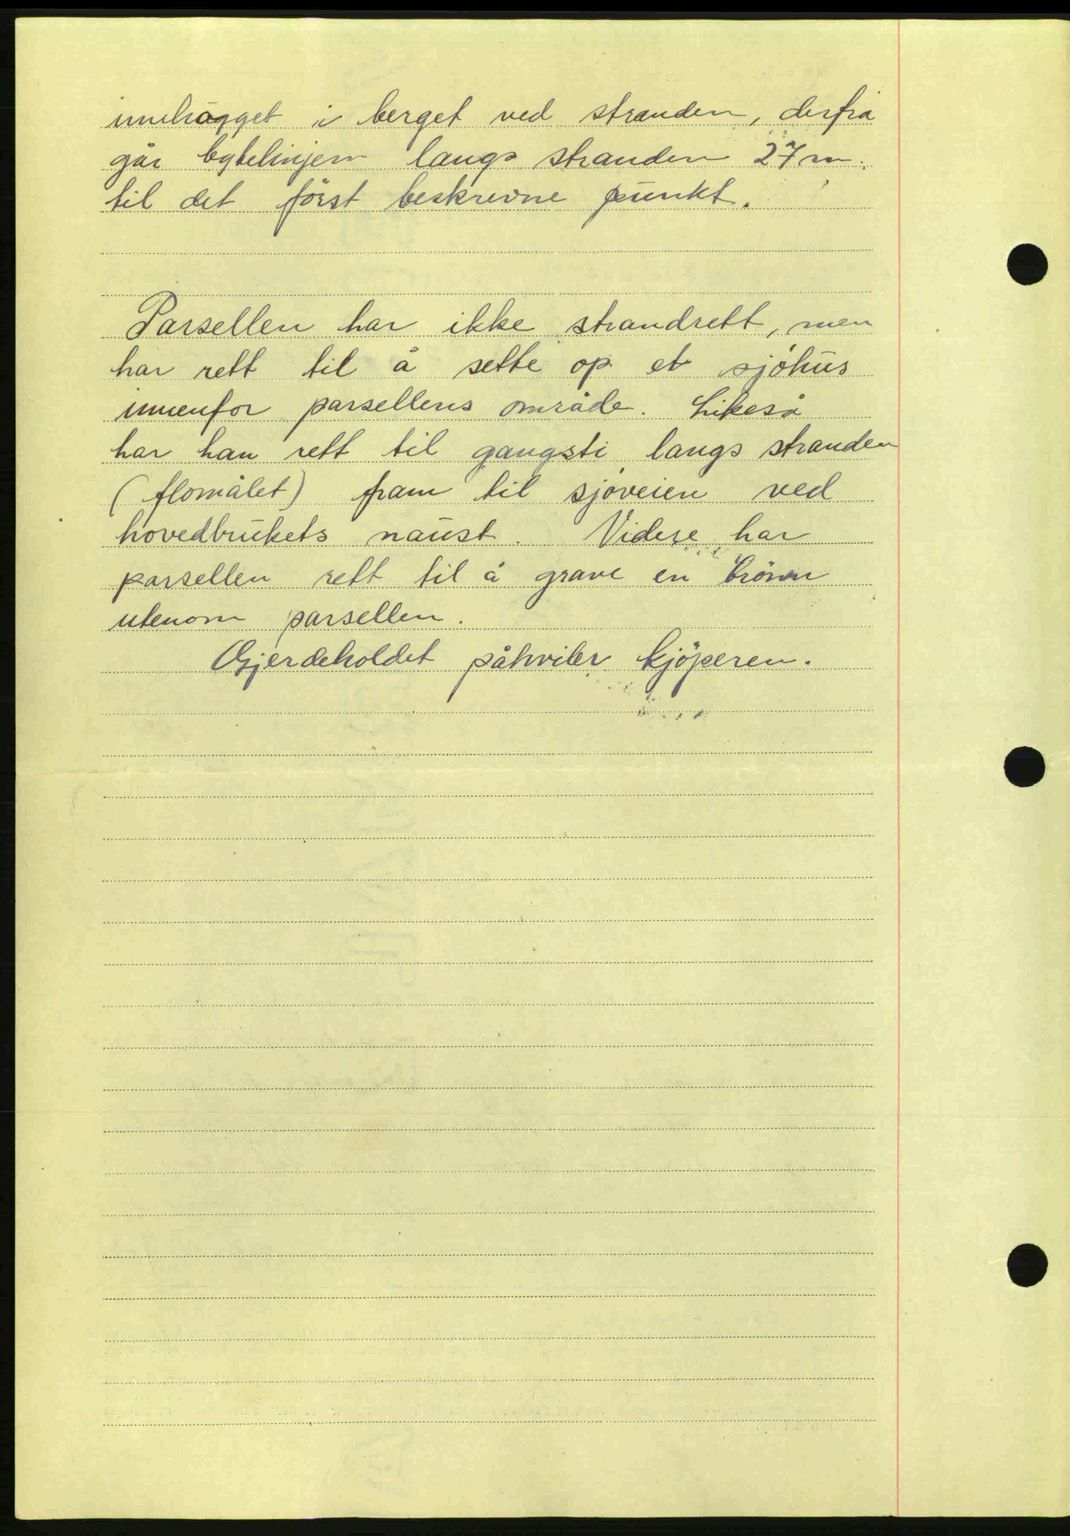 innhågget i berget ved stranden, derfra
går bytelinjem langs stranden 27 m.
til det först beskrevne punkt.
Parsellen har ikke strandrett, men
har rett til å sette op et sjöhus
innenfor parsellens område. Likeså
har han rett til gangsti langs stranden
(flomålet) fram til sjöveien ved
hovedbrukets naust. Videre har
parsellen rett til å grave en brönn
utenom parsellen.
Gjerdeholdet påhviler kjöperen.